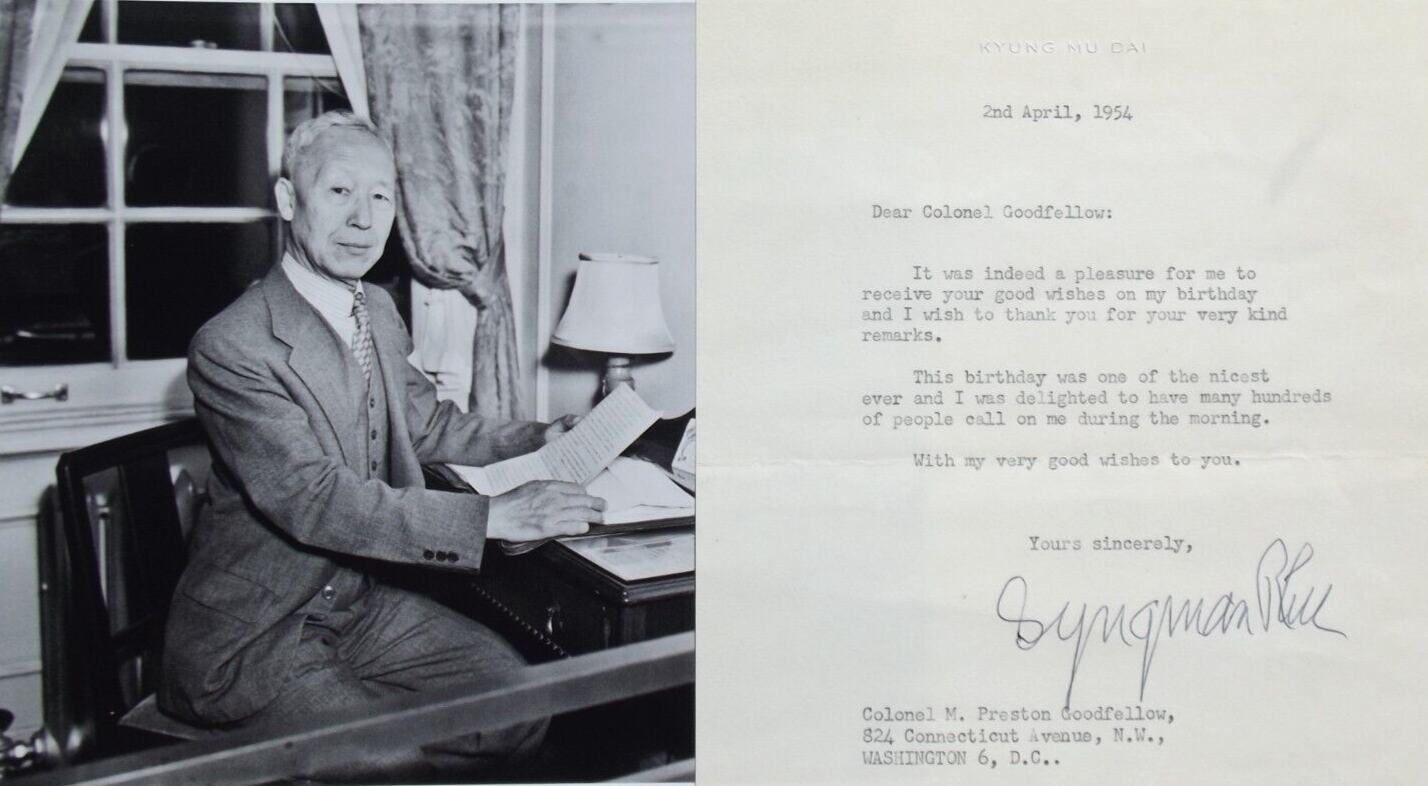 KYUNG MU DAI
2nd April, 1954
Dear Colonel Goodfellow:
It was indeed a pleasure for me to
receive your good wishes on my birthday
and I wish to thank you for your very kind
remarks.
This birthday was one of the nicest
ever and I was delighted to have many hundreds
of people call on me during the morning.
With my very good wishes to you.
Yours sincerely,
Syngman Rhee
Colonel M. Preston Goodfellow,
824 Connecticut Avenue, N.W.,
WASHINGTON 6, D.C..